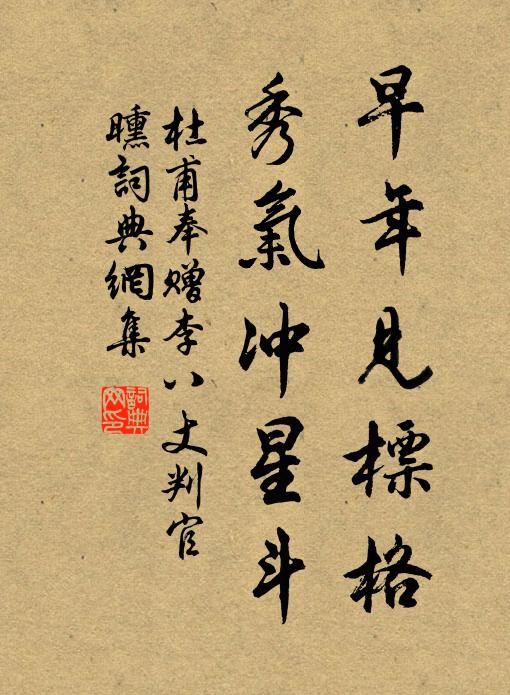 早年見標格
秀氣冲星斗
杜甫奉贈李八丈判官
曛詞典網集
詞典
网印